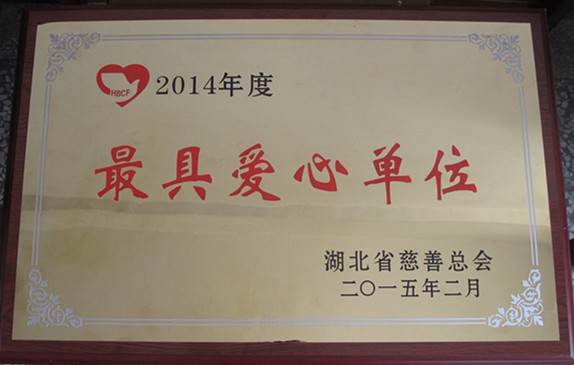 HBCF
2014年度
最具爱心单位
湖北省慈善总会
二〇一五年二月